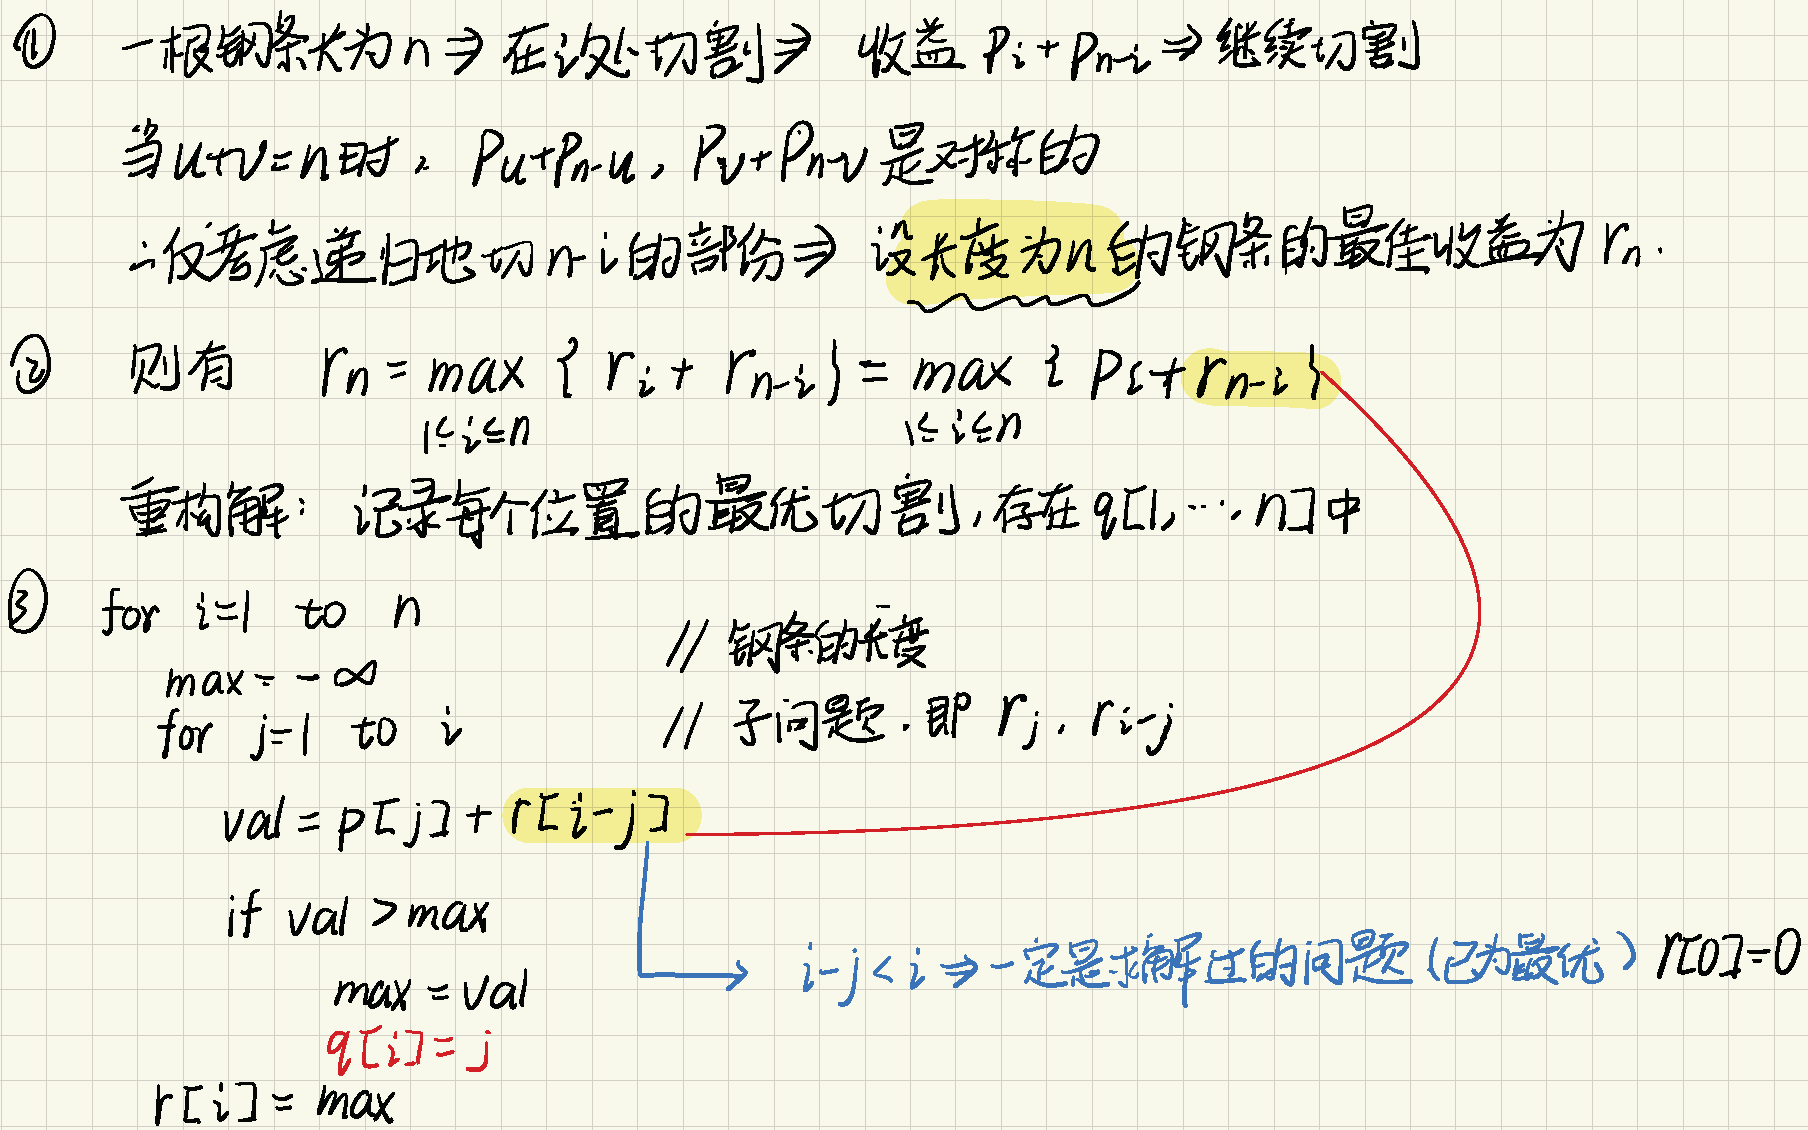 ① 一根钢条长为n ⇒ 在i处切割 ⇒ 收益 Pi+Pn-i ⇒ 继续切割
当u+v=n时，Pu+Pn-u，Pv+Pn-v是对称的
∴仅考虑递归地切n-i的部份 ⇒ 设长度为n的钢条的最佳收益为 rn.
② 则有 rn = max { ri + rn-i} = max { Pi + rn-i}
1≤i≤n 1≤i≤n
重构解：记录每个位置的最优切割，存在q[1,…,n]中
③ for i=1 to n
// 钢条的长度
max = -∞
for j=1 to i // 子问题.即 rj, ri-j
val = p[j] + r[i-j]
if val > max
i-j < i ⇒ 一定是求解过的问题（已为最优） r[0]=0
max = val
q[i] = j
r[i] = max